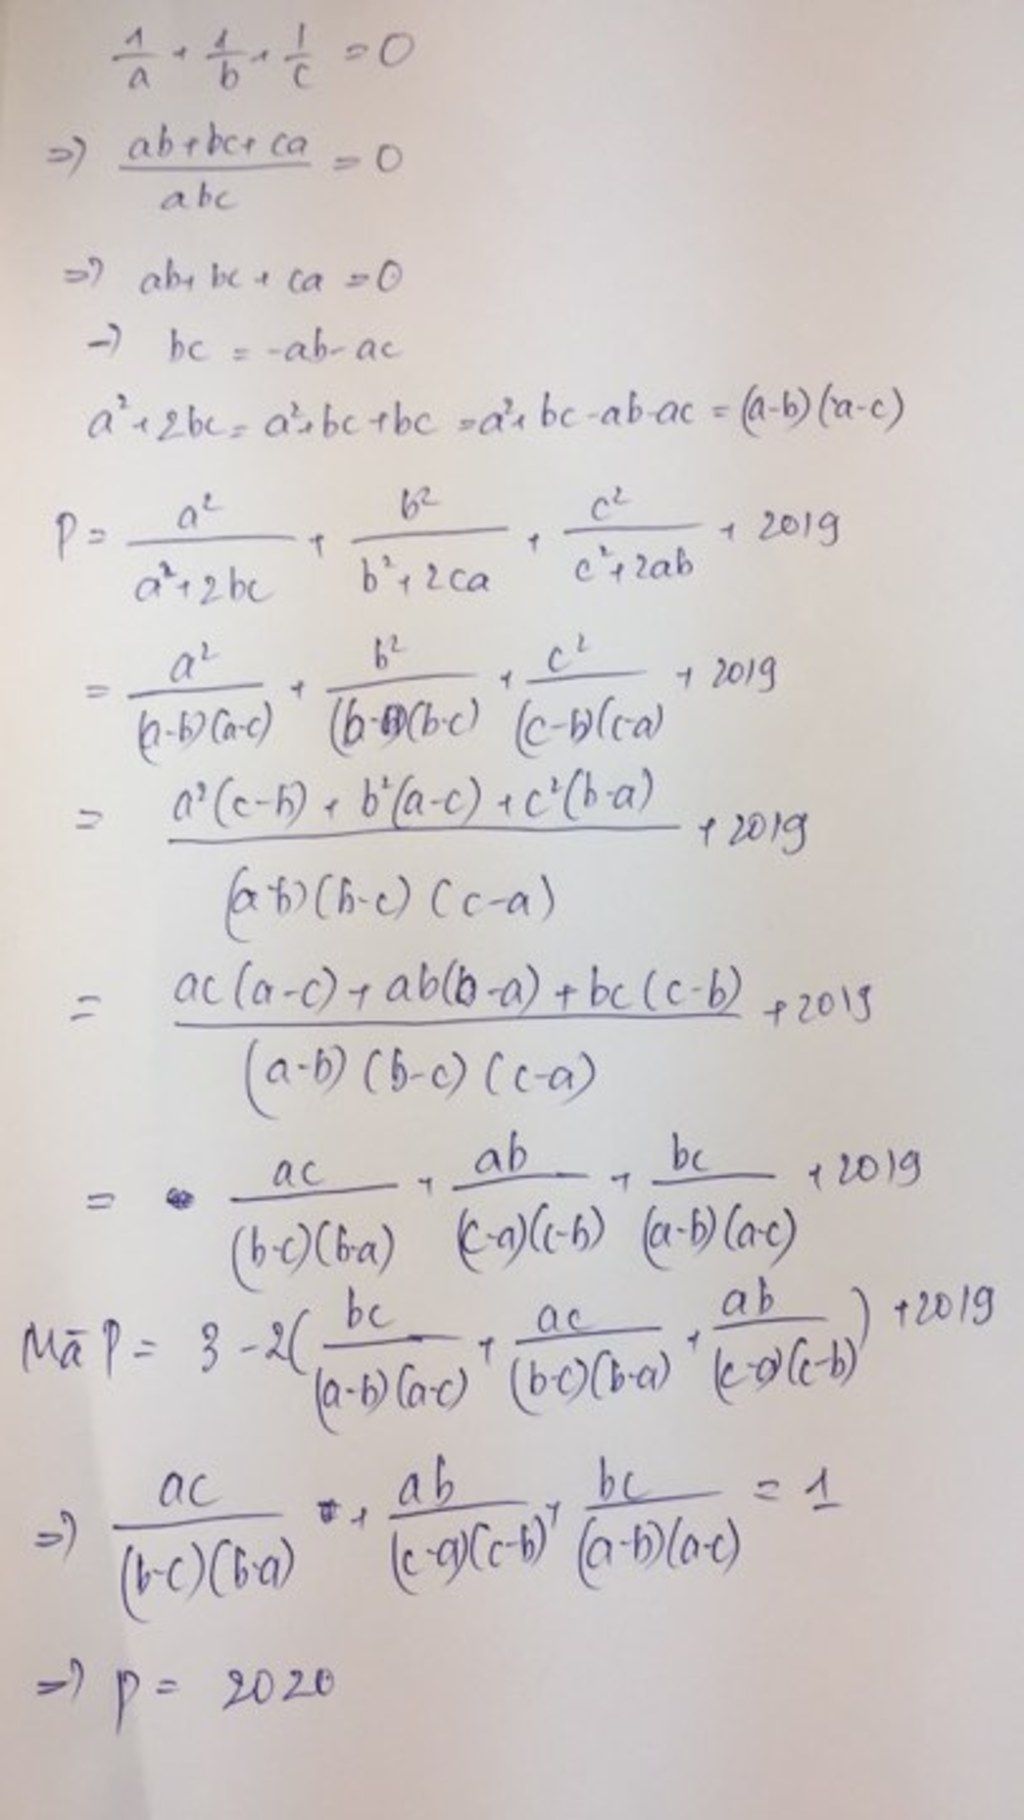 1/a + 1/b + 1/c = 0
=> (ab+bc+ca)/abc = 0
=> ab+bc+ca = 0
-> bc = -ab-ac
a²+2bc = a²+bc+bc = a²+bc-ab-ac = (a-b)(a-c)
P = a²/(a²+2bc) + b²/(b²+2ca) + c²/(c²+2ab) + 2019
= a²/(a-b)(a-c) + b²/(b-a)(b-c) + c²/(c-b)(c-a) + 2019
= (a²(c-b) + b²(a-c) + c²(b-a))/(a-b)(b-c)(c-a) + 2019
= (ac(a-c) + ab(b-a) + bc(c-b))/(a-b)(b-c)(c-a) + 2019
= ac/(b-c)(b-a) + ab/(c-a)(c-b) + bc/(a-b)(a-c) + 2019
Mà P = 3 - 2(bc/(a-b)(a-c) + ac/(b-c)(b-a) + ab/(c-a)(c-b)) + 2019
=> ac/(b-c)(b-a) + ab/(c-a)(c-b) + bc/(a-b)(a-c) = 1
=> P = 2020